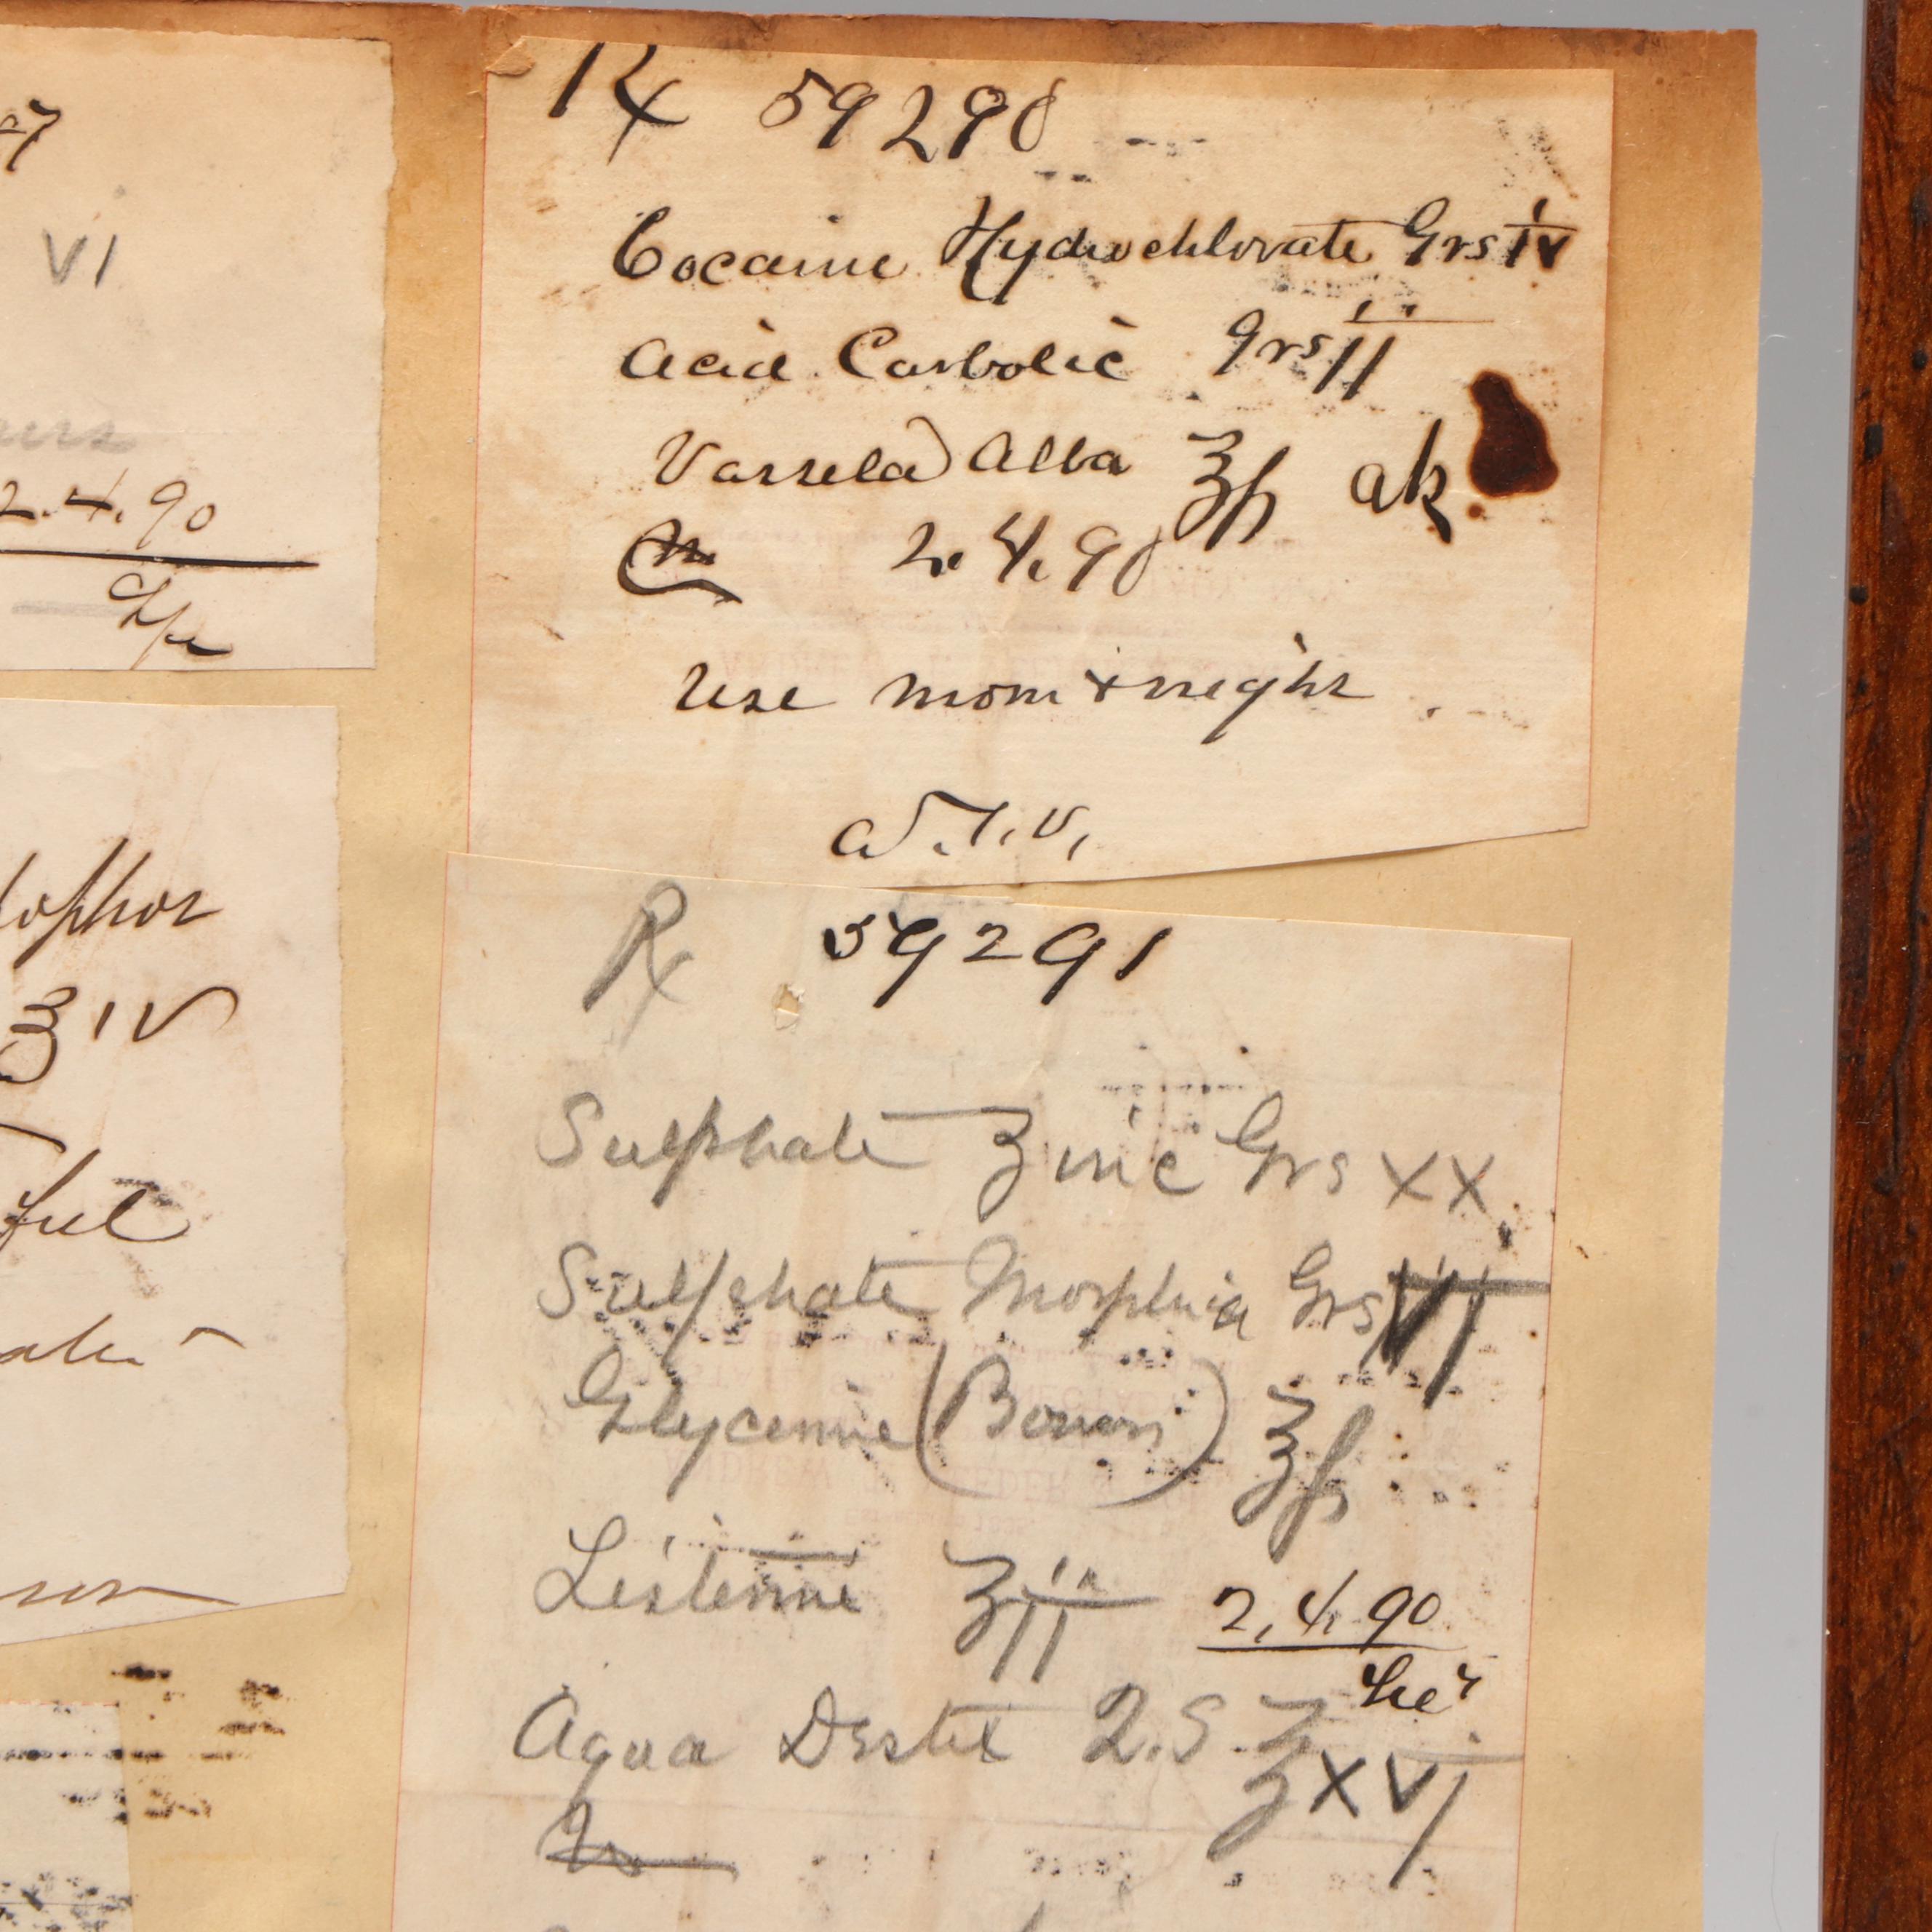 VI
2.4.90
ʒ IV
ful
Rx 59290
Cocaine Hydrochlorate Grs IV
Acid Carbolic grs II
Vassela Alba ℥ſs ak
M 2.4.90
Use morn + night
Rx 59291
Sulphate Zinc Grs XX
Sulphate Morphia Grs VI
Glycerine (Bowers) ℥ſs
Listerine ℥ II 2.4.90
Aqua Destil Q.S. ℥ XVI
M